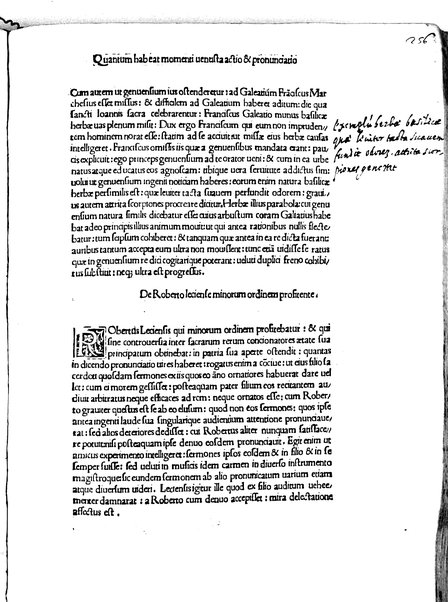 256
Quantum habeat momenti uenusta actio & pronunciatio
Cum autem ut genuensium ius ostenderetur: ad Galeatium Frãciscus Mar
chesius esset missus: & difficilem ad Galeatium haberet aditum: die qua
sancti Ioannis sacra celebrarentur: Franciscus Galeatio munus basilicæ
herbæ uas plenum misit: Dux ergo Franciscum qui eum non impruden/
tem hominem norat esse: statim ad se acciuit: ut missæ eius herbæ causas
intelligeret. Franciscus omissis iis quæ a genuensibus mandata erant: pau/
cis explicuit: ego princeps genuensium ad te orator ueni: & cum in ea urbe
natus atque educatus eos agnoscam: tibique uera
uolui ut genuensium ingenii noticiam haberes: eorum enim natura basilicæ
herbæ persimilis est: quæ leuiter tacta suauem perfundit odorem: graui/
us autem attrita scorpiones procreare dicitur. Herbæ illius parabola: cui genu
ensium natura similis dicebatur esset cuius arbustum coram Galeatius habe
bat adeo principis illius animum mouit: ut qui antea rationibus nullis flecte/
batur: tum sæpium cohiberet: & tanquam quæ antea in ea re dicta fuerant:
auribus tantum accepta eum ultra non mouissent: tunc etiã uidisse se ratus
quæ in genuensium re dici cogitarique poterant: ueluti duplici freno cohibi/
tus substitit: neq; ultra est progressus.
Exemplũ herbæ basilicæ
quæ leuiter tacta suauem
fundit odorem. attrita scor
piones generat
De Roberto leciense minorum ordinem profitente.
ROBertus Leciensis qui minorum ordinem profitebatur: & qui
sine controuersia inter sacrarum rerum concionatores ætate sua
principatum obtinebat: in patria sua aperte ostendit: quantas
in dicendo pronunciatio uires haberet: rogatus enim a cõciue: ut eius filio sa
cerdoti quosdam sermones ex iis quos eo ãno ornatiores habuerat dare uel
let: cum ei morem gessisset: posteaquam pater filium eos recitantem au/
diuit arbitratus neque efficaces ad rem: neque ornatos esse: cum Rober/
to grauiter questus est se ab eo elusum: quod non eos sermones: quos ipse
antea ingenti laude sua singularique audientium attentione pronunciaue/
rat: sed alios deteriores dedisset: cui Robertus aliter nunquam satisface/
re potuit: nisi posteaquam ipse denuo eosdem pronunciauit. Egit enim ut
amicus experimento intelligeret: sermones ipsos eosdem & in filio & in se
semper fuisse: sed ueluti in musicis idem carmen in diuerso instrumento
magistroque sic eundem sermonem ab alio pronunciatum uarium etiam
atque diuersum uideri. Leciensis igitur ille quod ex filio auditum uehe/
menter damnarat: a Roberto cum denuo accepisset: mira delectatione
affectus est.